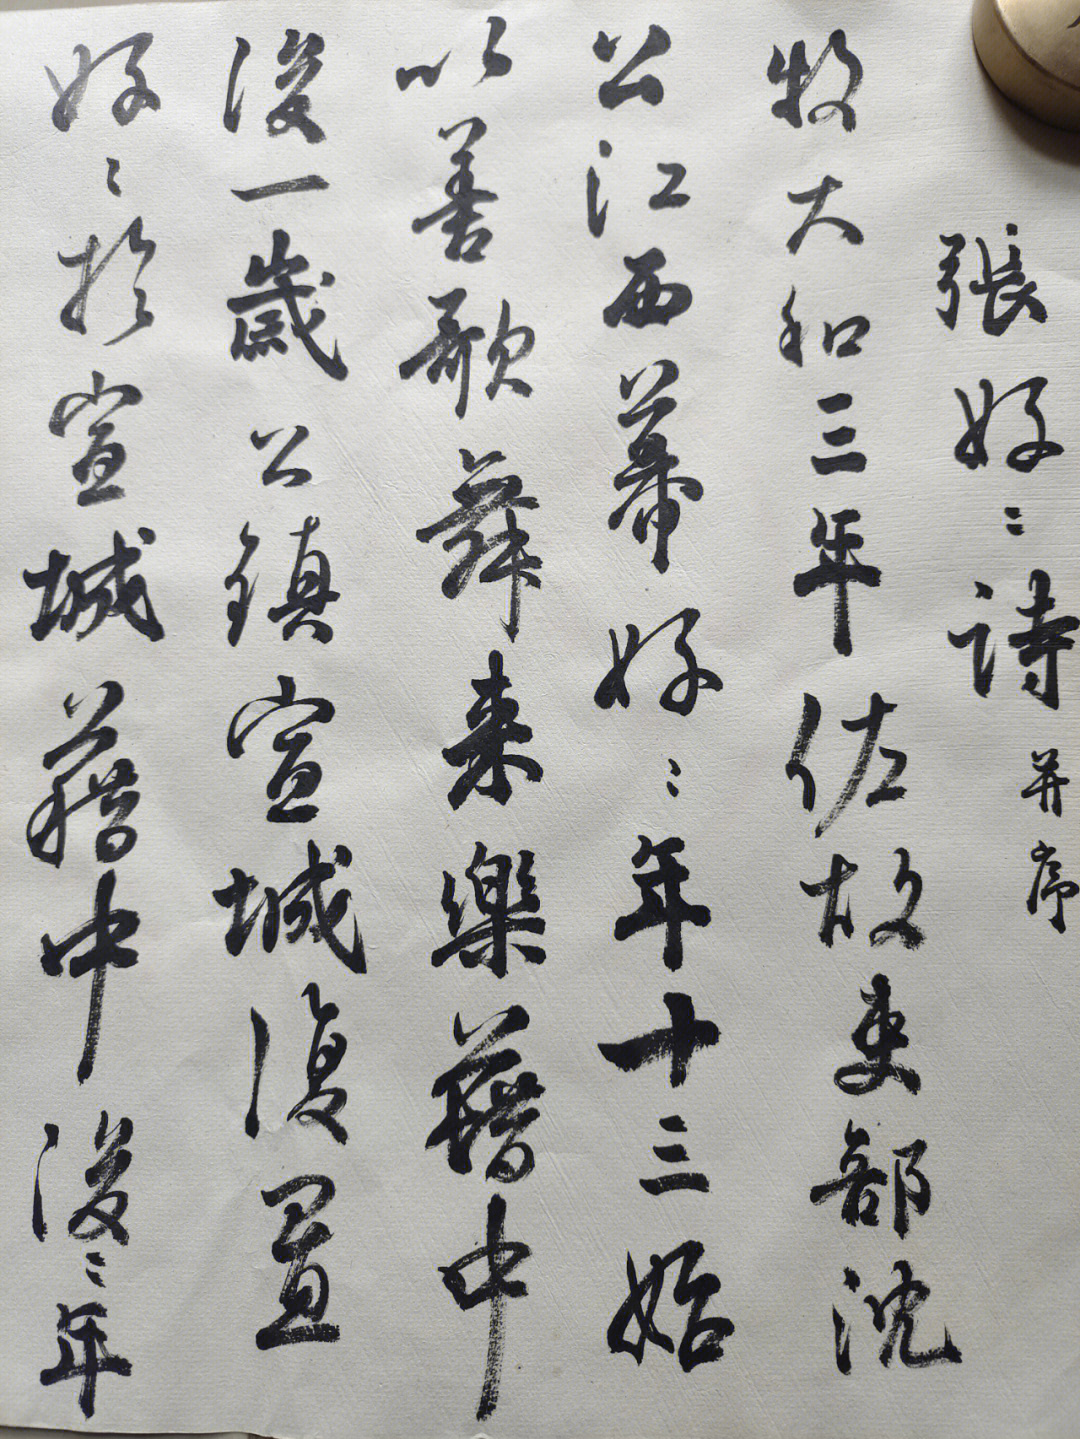 張好〻詩并序
牧大和三年佐故吏部沈
公江西幕好〻年十三始
以善歌舞来樂籍中
後一歳公鎮宣城復置
好〻於宣城籍中後〻年